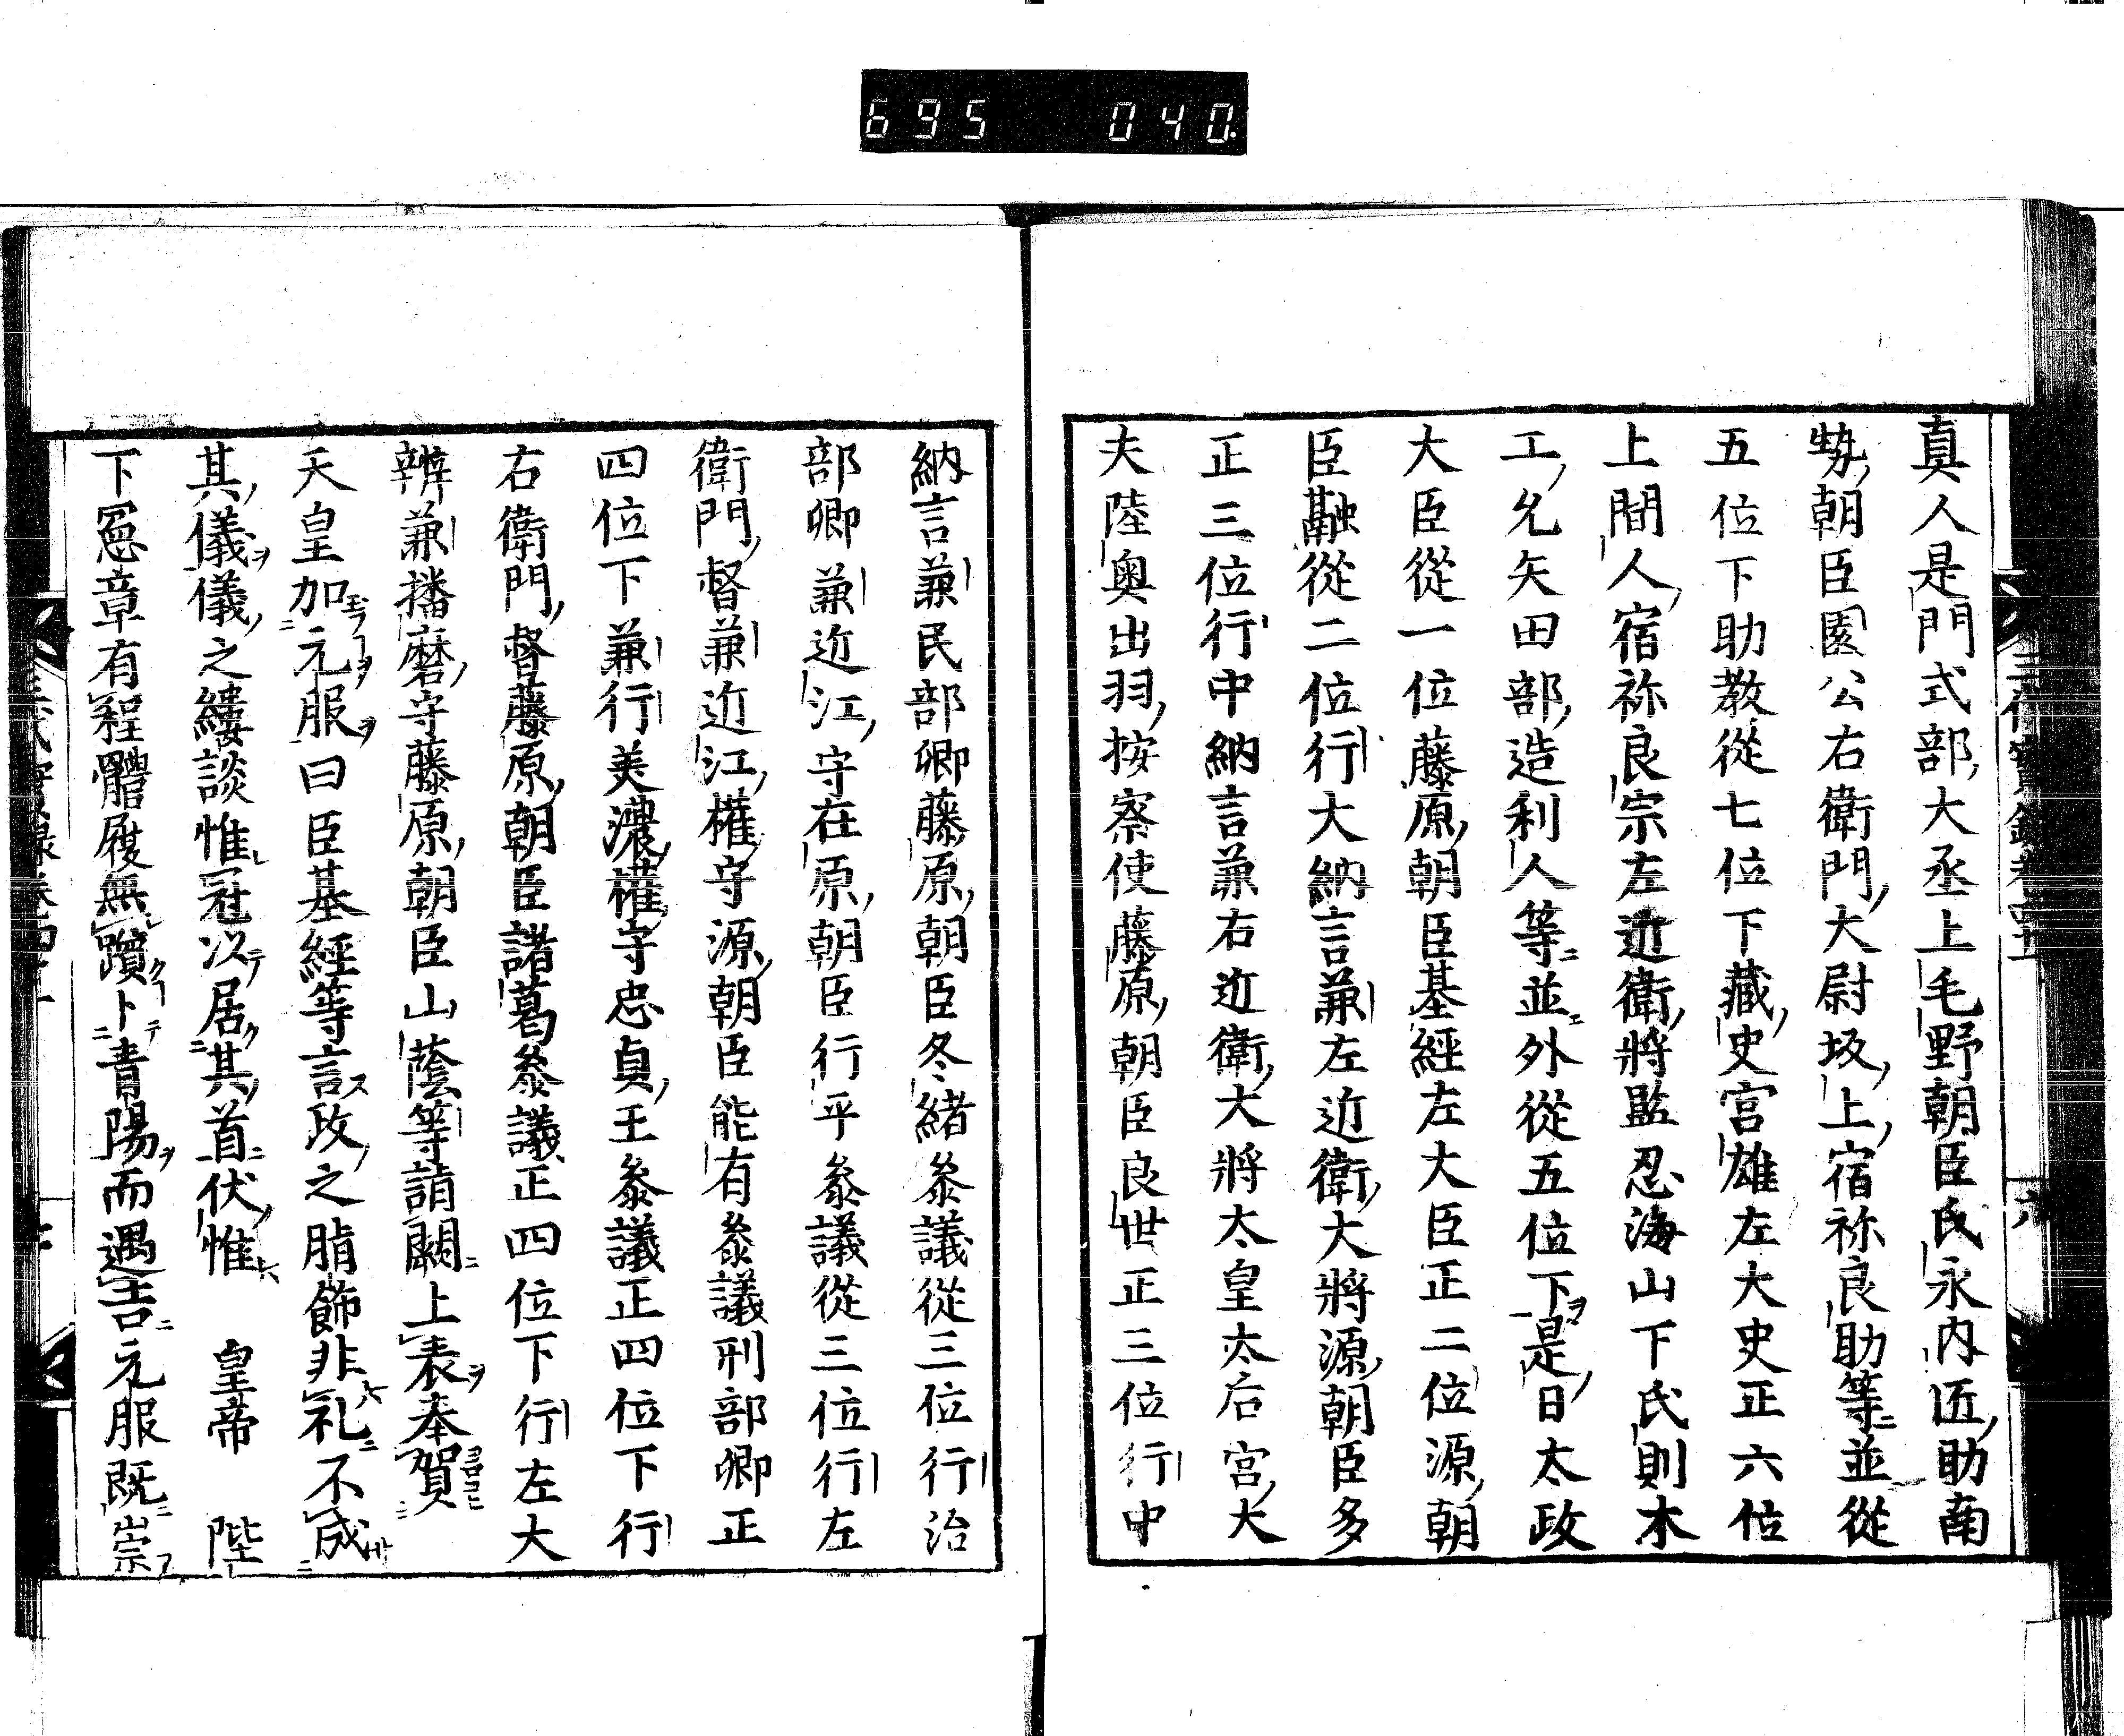 695 040.
真人是門式部大丞上毛野朝臣氏永内匠助南
㔟朝臣園公右衛門大尉坂上宿祢良助等並從
五位下助教從七位下藏史宮雄左大史正六位
上間人宿祢良宗左近衛將監忍海山下氏則木
工允矢田部造利人等並外從五位下是日太政
大臣從一位藤原朝臣基經左大臣正二位源朝
臣融從二位行大納言兼左近衛大將源朝臣多
正三位行中納言兼右近衛大將太皇太后宮大
夫陸奥出羽按察使藤原朝臣良世正三位行中
納言兼民部卿藤原朝臣冬緒叅議從三位行治
部卿兼近江守在原朝臣行平叅議從三位行左
衛門督兼近江權守源朝臣能有叅議刑部卿正
四位下兼行美濃權守忠貞王叅議正四位下行
右衛門督藤原朝臣諸葛叅議正四位下行左大
辨兼播磨守藤原朝臣山蔭等詣闕上表奉賀
天皇加元服曰臣基經等言政之脂飾非礼不成
其儀儀之縷談惟冠以居其首伏惟　皇帝　陛
下寃章有程體履無躓卜青陽而遇吉元服既崇